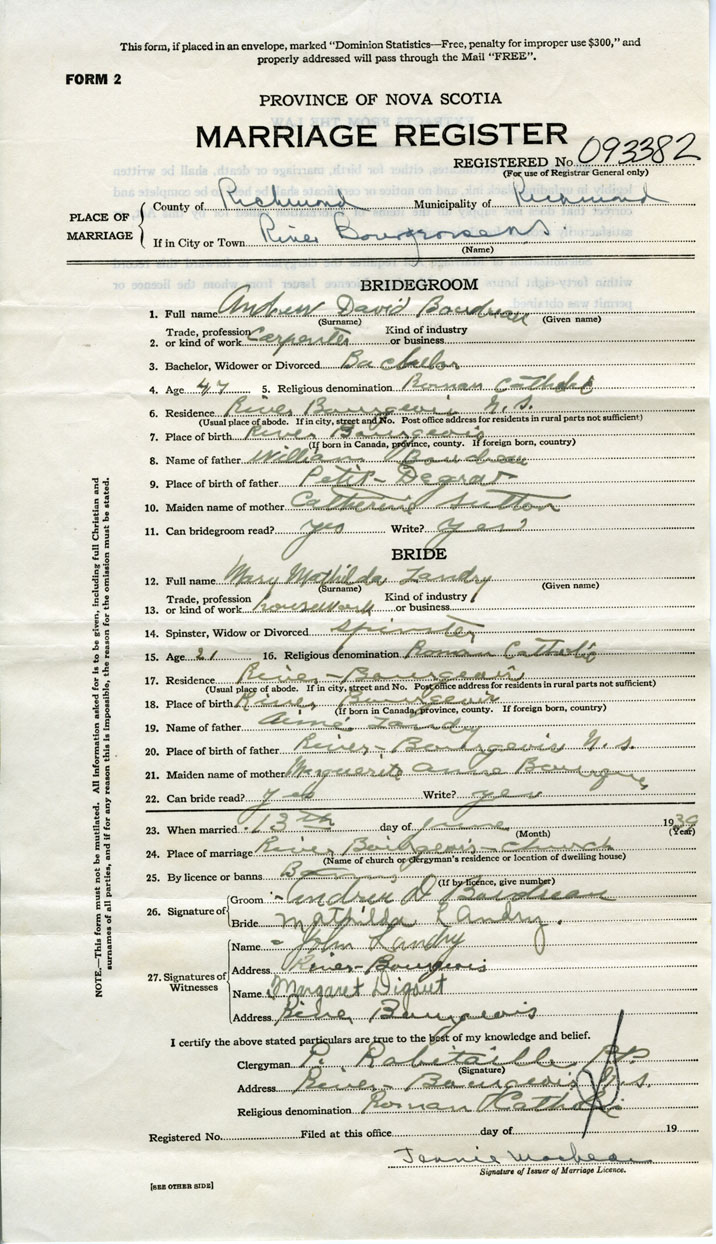 This form, if placed in an envelope, marked "Dominion Statistics—Free, penalty for improper use $300," and
properly addressed will pass through the Mail "FREE".
FORM 2
PROVINCE OF NOVA SCOTIA
MARRIAGE REGISTER
REGISTERED No. 093382
(For use of Registrar General only)
PLACE OF MARRIAGE
County of Richmond Municipality of Richmond
If in City or Town River
(Name)
BRIDEGROOM
1. Full name Andrew David Boudreau
(Surname) (Given name)
2. Trade, profession or kind of work Carpenter Kind of industry or business
3. Bachelor, Widower or Divorced Bachelor
4. Age 47 5. Religious denomination Roman Catholic
6. Residence River Bourgeois N.S.
(Usual place of abode. If in city, street and No. Post office address for residents in rural parts not sufficient)
7. Place of birth River Bourgeois
(If born in Canada, province, county. If foreign born, country)
8. Name of father William Boudreau
9. Place of birth of father Petit-Degrat
10. Maiden name of mother Catherine Sutton
11. Can bridegroom read? yes Write? yes
BRIDE
12. Full name Mary Mathilda Landry
(Surname) (Given name)
13. Trade, profession or kind of work housework Kind of industry or business
14. Spinster, Widow or Divorced spinster
15. Age 21 16. Religious denomination Roman Catholic
17. Residence River-Bourgeois
(Usual place of abode. If in city, street and No. Post office address for residents in rural parts not sufficient)
18. Place of birth River Bourgeois
(If born in Canada, province, county. If foreign born, country)
19. Name of father Aimé Landry
20. Place of birth of father River-Bourgeois N.S.
21. Maiden name of mother Marguerite Anne
22. Can bride read? yes Write? yes
23. When married 13th day of June 1939
(Month) (Year)
24. Place of marriage River Bourgeois-church
(Name of church or clergyman's residence or location of dwelling house)
25. By licence or banns
(If by licence, give number)
26. Signature of
Groom Andrew D Boudreau
Bride Mathilda Landry.
27. Signatures of Witnesses
Name John Landry
Address River-Bourgeois
Name Margaret Digout
Address River Bourgeois
I certify the above stated particulars are true to the best of my knowledge and belief.
Clergyman P. Robitaille P.P.
(Signature)
Address River-Bourgeois N.S.
Religious denomination Roman Catholic
Registered No. Filed at this office day of 19
Jennie
Signature of Issuer of Marriage Licence.
[SEE OTHER SIDE]
NOTE.—This form must not be mutilated. All information asked for is to be given, including full Christian and
surnames of all parties, and if for any reason this is impossible, the reason for the omission must be stated.